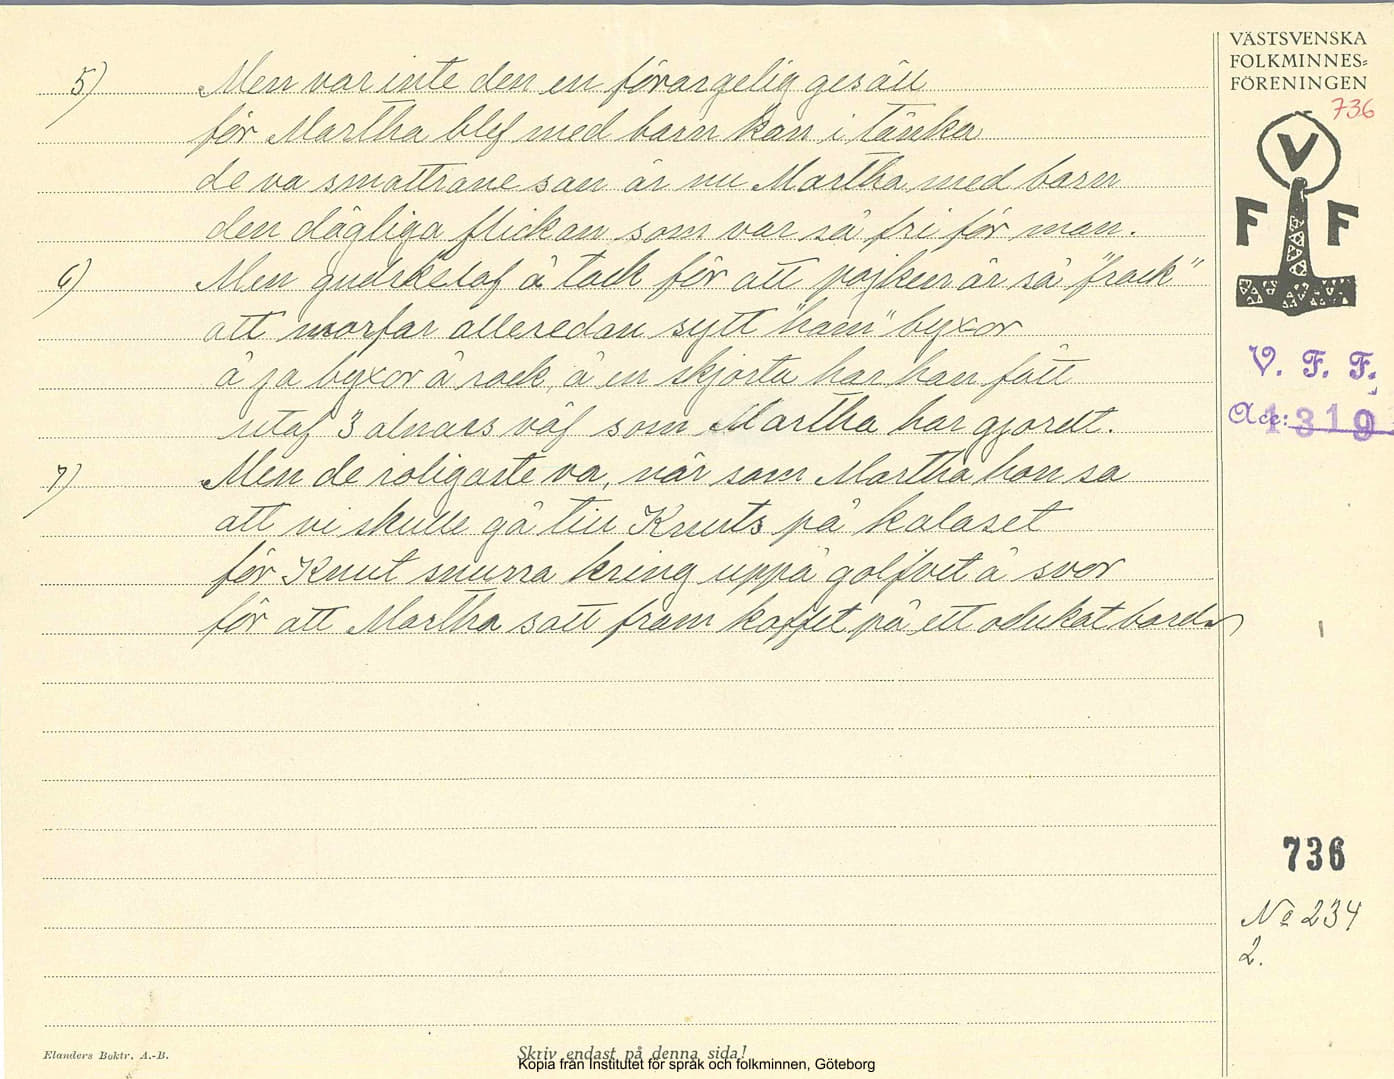 VÄSTSVENSKA
FOLKMINNES-
FÖRENINGEN
736
V
F F
V. F. F.
Acc: 1319
5) Men var inte den en förargelig gesäll
för Martha blef med barn kan i tänka
de va smattrane san är nu Martha med barn
den dågliga flickan som var så fri för man.
6) Men gudskelof å tack för att pojken är så "frack"
att morfar alleredan sytt "ham" byxor
å ja byxor å rock, å en skjorta har han fått
utaf 3 alnars väf som Martha har gjordt.
7) Men de roligaste va, när som Martha hon sa
att vi skulle gå till Knuts på kalaset
för Knut snurra kring uppå golfvet å svor
för att Martha satt fram kaffet på ett odukat bord
736
No 234
2.
Elanders Boktr. A.-B.
Skriv endast på denna sida!
Kopia från Institutet för språk och folkminnen, Göteborg